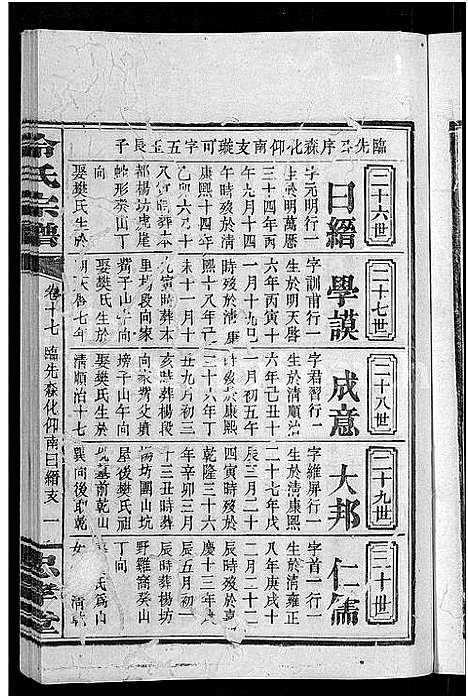 臨先公序森化仰南支璇可字五玉長子
二十六世
曰縉
字元明行一
生於明萬曆
三十四年丙
午九月十四
午時歿於清
康熙十四年
乙卯六月十
八
都楊坊虎崖
蛇形癸山丁
向娶樊氏生於
二十七世
學謨
字訓甫行一
生於明天啓
六年丙寅十
一月十九
時歿於清康
熙十八年己
未十一月十
寅時葬本
里坊段向家
嘴子山午向
娶樊氏生於
明天啓七年
二十八世
成意
字君習行一
生於清順治
六年己丑十
一月初五午
時歿於康熙
三十六年丁
丑九月初三
亥時葬楊段
向家嘴父墳
塝子山午向
娶樊氏生於
清順治十七
二十九世
大邦
字維屏行一
生於清康熙
二十七年戊
辰三月二十
四寅時歿於
乾隆三十六
年辛卯三月
十三丑時葬
楊坊團山坑
屋後樊氏祖
墓前乾山
巽向後改乾
三十世
仁儒
字首一行一
生於清雍正
八年庚戌十
二月二十二
辰時歿於嘉
慶十三年戊
辰五月初一
辰時葬楊坊
野雞窩癸山
丁向
冷氏宗譜
卷十七
臨先森化仰南曰縉支
一
忠孝堂